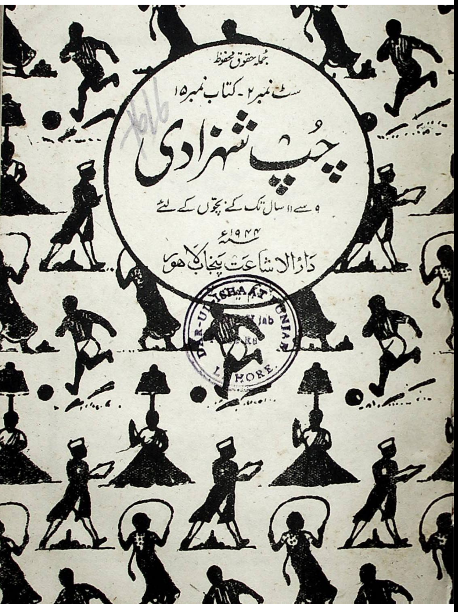 جملہ حقوق محفوظ
سٹ نمبر ۲ - کتاب نمبر ۱۵
چُپ شہزادی
۹ سے ۱۱ سال تک کے بچّوں کے لئے
۱۹۴۴ء
دارالاشاعت پنجاب لاهور
DAR-UL-ISHAAT PUNJAB
LAHORE.